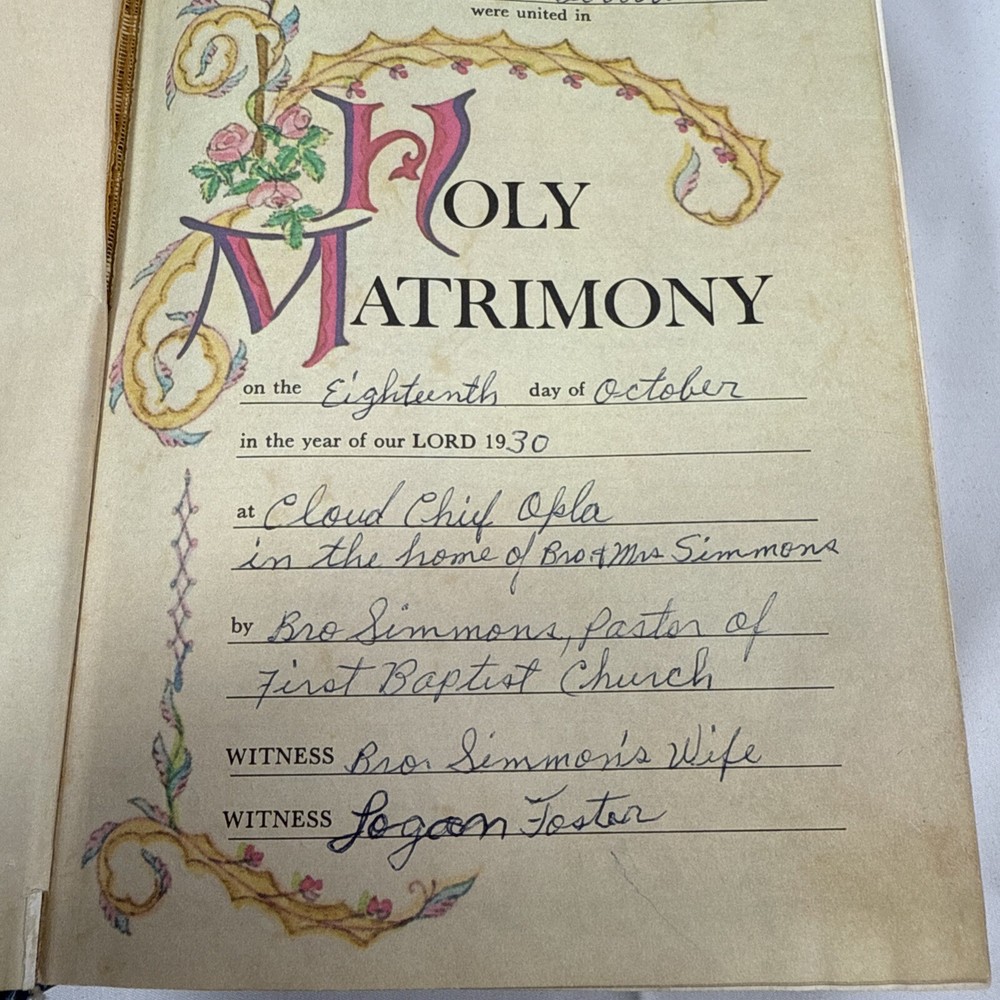 were united in
HOLY
MATRIMONY
on the Eighteenth day of October
in the year of our LORD 1930
at Cloud Chief Okla
in the home of Bro & Mrs Simmons
by Bro Simmons, Pastor of
First Baptist Church
WITNESS Bro. Simmon's Wife
WITNESS Logan Foster